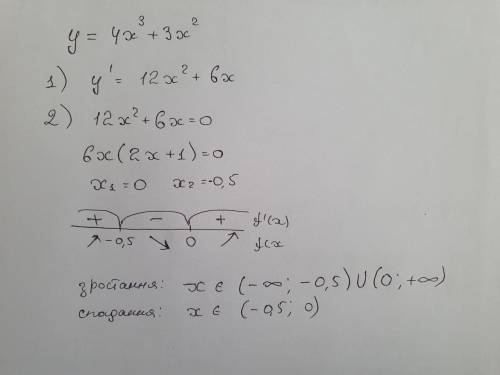 y = 4x³ + 3x²
1) y' = 12x² + 6x
2) 12x² + 6x = 0
6x(2x+1) = 0
x₁ = 0 x₂ = -0,5
+ - + f'(x)
↗ -0,5 ↘ 0 ↗ f(x
зростання: x ∈ (-∞; -0,5) ∪ (0; +∞)
спадання: x ∈ (-0,5; 0)